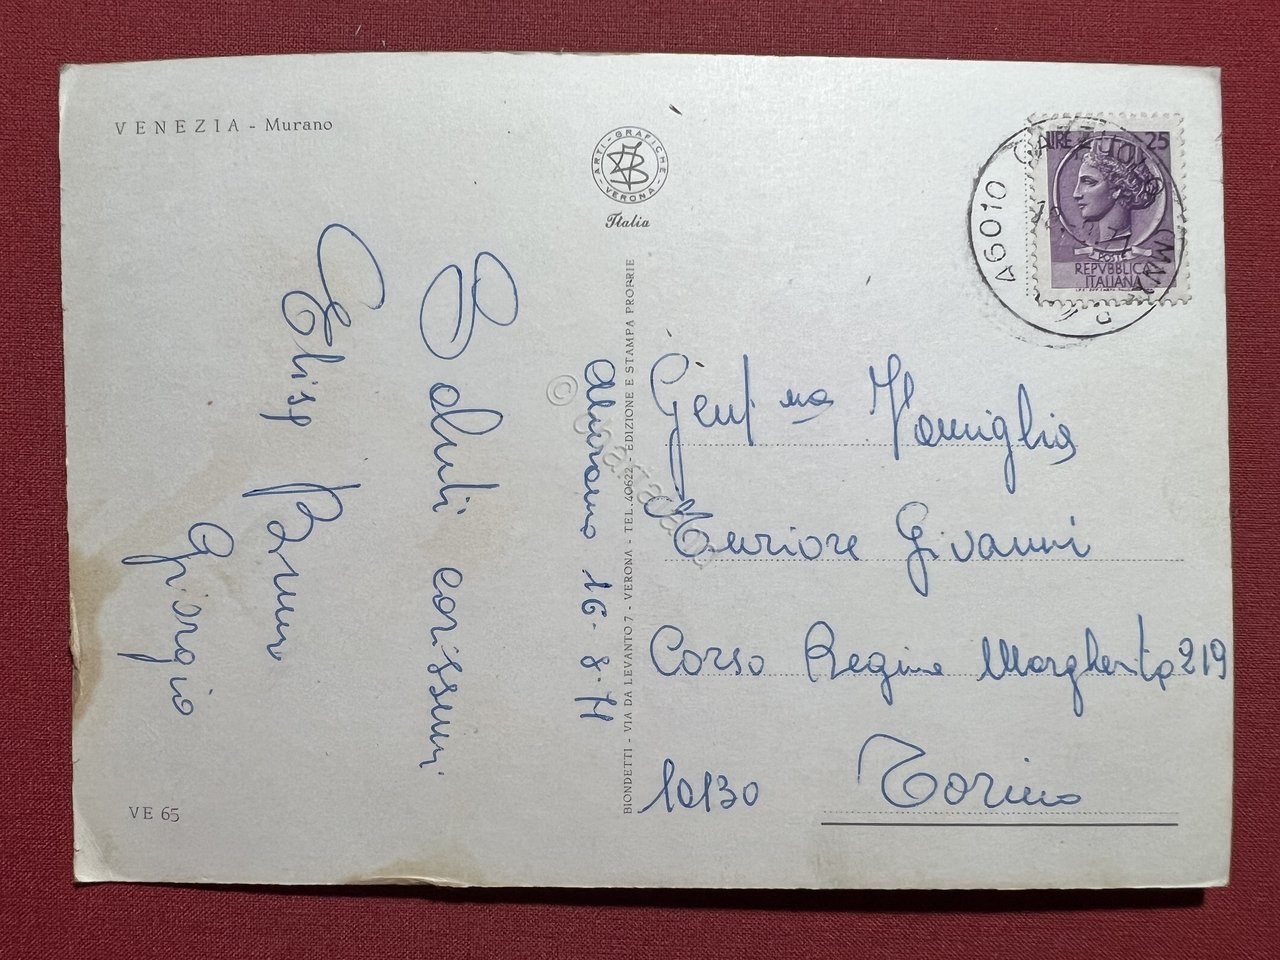 VENEZIA - Murano
ARTI - GRAFICHE
VERONA
Italia
LIRE 25
POSTE
REPVBBLICA
ITALIANA
46010
Saluti carissimi
Elisa Bruno
Giorgio
16-8-71
BIONDETTI - VIA DA LEVANTO 7 - VERONA - TEL. 40622 - EDIZIONE E STAMPA PROPRIE
Gent ma Famiglia
Giovanni
Corso Regina Margherita 219
10130 Torino
VE 65